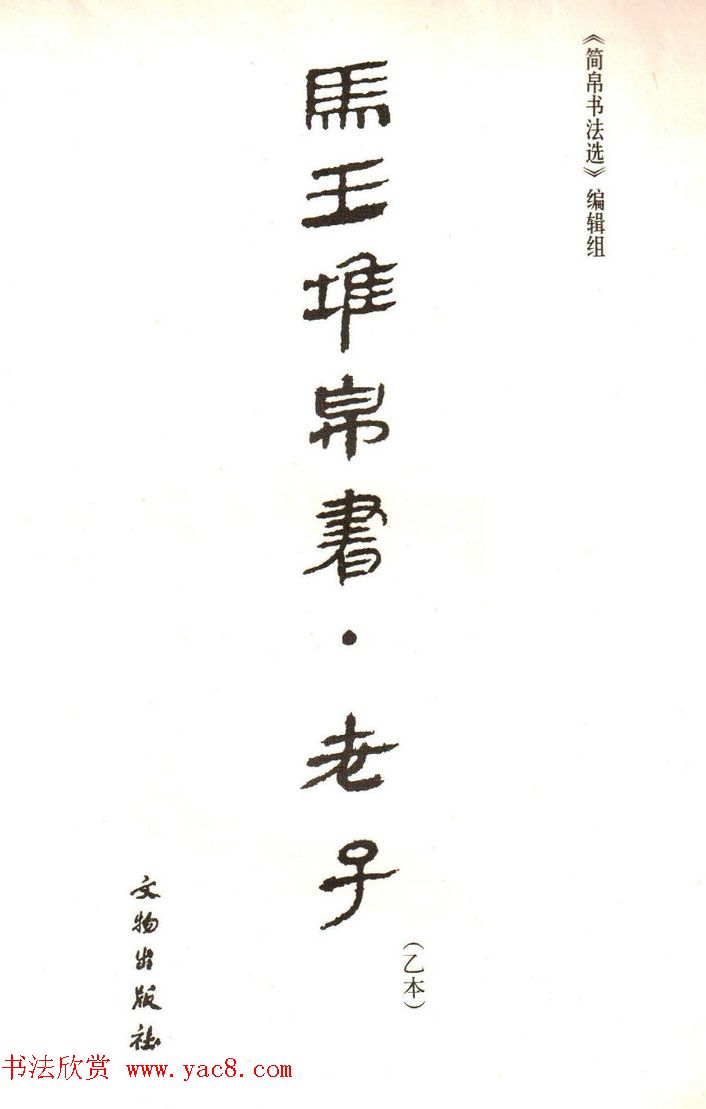 《简帛书法选》编辑组
馬王堆帛書·老子
(乙本)
文物出版社
书法欣赏 www.yac8.com